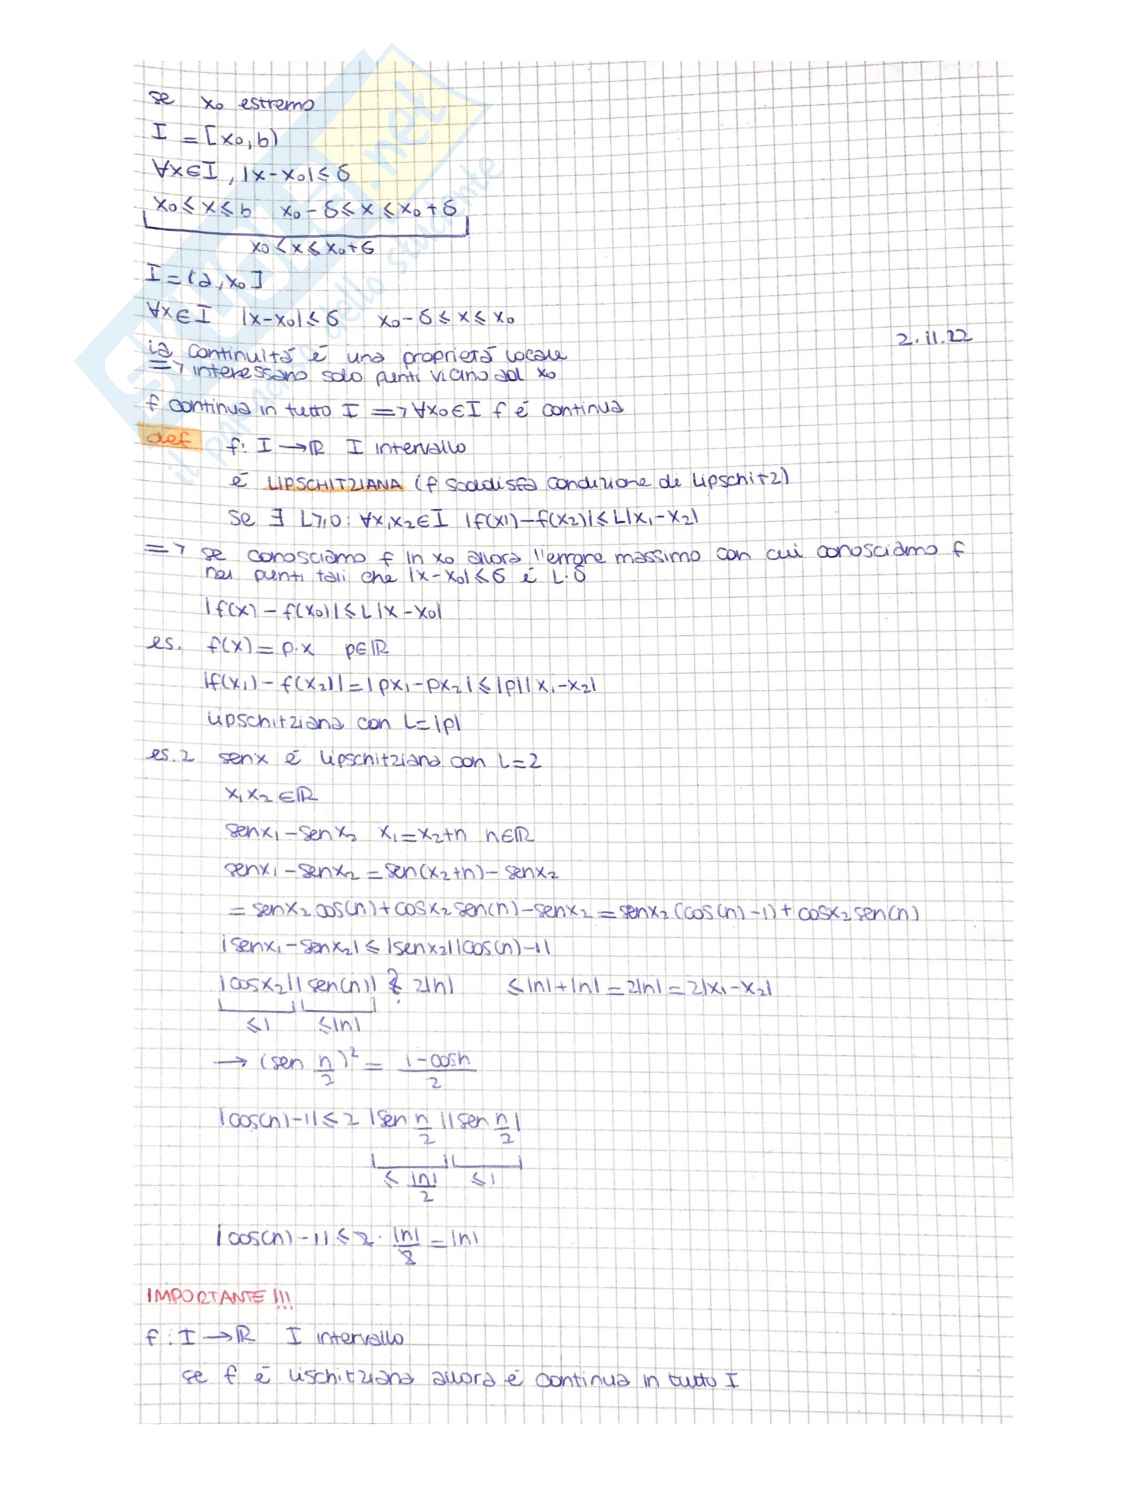 se x₀ estremo
I = [x₀, b)
∀x∈I, |x-x₀|≤δ
x₀≤x≤b x₀-δ≤x≤x₀+δ
x₀≤x≤x₀+δ
I = (a, x₀]
∀x∈I |x-x₀|≤δ x₀-δ≤x≤x₀
2.11.22
la continuità é una proprietà locale
=> interessano solo punti vicino ad x₀
f continua in tutto I => ∀x₀∈I f é continua
def f: I → ℝ I intervallo
é LIPSCHITZIANA (f soddisfa condizione de Lipschitz)
se ∃ L≥0: ∀x₁x₂∈I |f(x1)-f(x2)|≤L|x₁-x₂|
=> se conosciamo f in x₀ allora l'errore massimo con cui conosciamo f
nei punti tali che |x-x₀|≤δ é L·δ
|f(x)-f(x₀)|≤L|x-x₀|
es. f(x)=p·x p∈ℝ
|f(x₁)-f(x₂)|=|px₁-px₂|≤|p||x₁-x₂|
lipschitziana con L=|p|
es.2 senx é lipschitziana con L=2
x₁x₂∈ℝ
senx₁-senx₂ x₁=x₂+h h∈ℝ
senx₁-senx₂=sen(x₂+h)-senx₂
=senx₂cos(h)+cosx₂sen(h)-senx₂=senx₂(cos(h)-1)+cosx₂sen(h)
|senx₁-senx₂|≤|senx₂||cos(h)-1|
|cosx₂||sen(h)| ≤? 2|h| ≤|h|+|h|=2|h|=2|x₁-x₂|
≤1 ≤|h|
→ (sen h/2)²= (1-cosh)/2
|cos(h)-1|≤2|sen h/2||sen h/2|
≤ |h|/2 ≤1
|cos(h)-1|≤2·|h|/2=|h|
IMPORTANTE!!!
f: I → ℝ I intervallo
se f é lischitziana allora é continua in tutto I